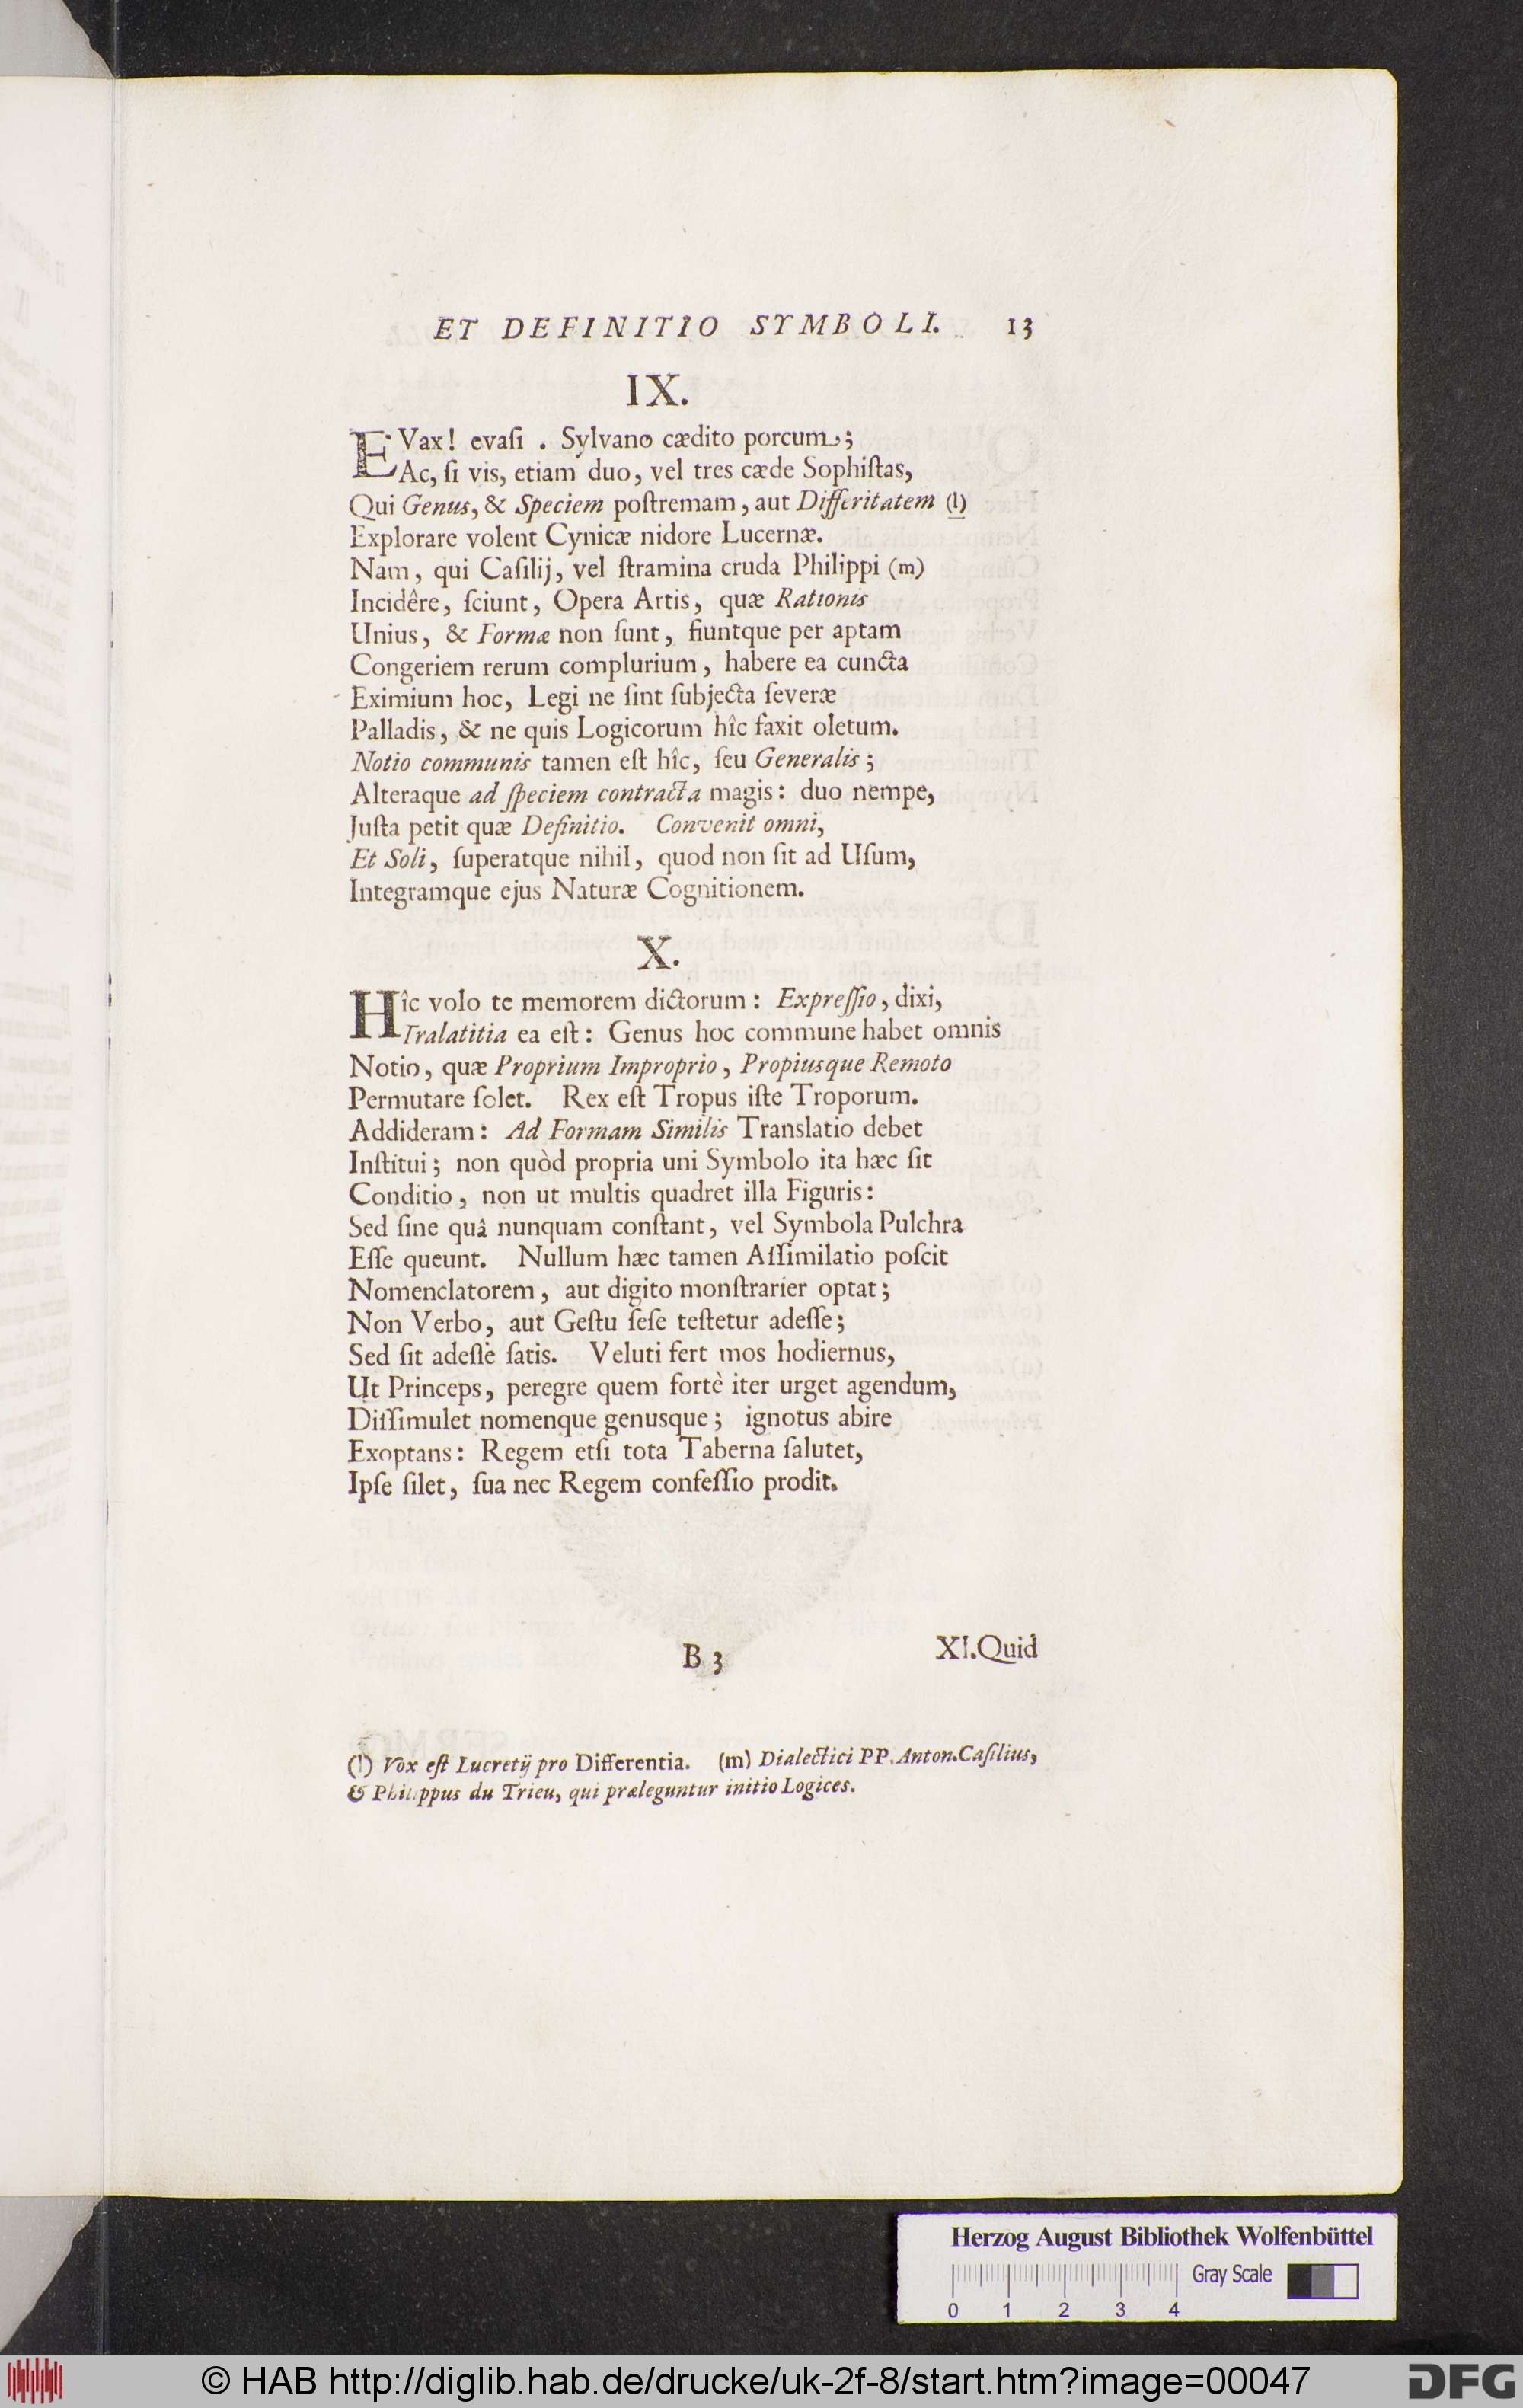 ET DEFINITIO SYMBOLI. 13
IX.
EVax! evaſi . Sylvano cædito porcum;
Ac, ſi vis, etiam duo, vel tres cæde Sophiſtas,
Qui Genus, & Speciem poſtremam, aut Differitatem (l)
Explorare volent Cynicæ nidore Lucernæ.
Nam, qui Caſilij, vel ſtramina cruda Philippi (m)
Incidêre, ſciunt, Opera Artis, quæ Rationis
Unius, & Formæ non ſunt, fiuntque per aptam
Congeriem rerum complurium, habere ea cuncta
Eximium hoc, Legi ne ſint ſubjecta ſeveræ
Palladis, & ne quis Logicorum hîc faxit oletum.
Notio communis tamen eſt hîc, ſeu Generalis;
Alteraque ad ſpeciem contracta magis: duo nempe,
Juſta petit quæ Definitio. Convenit omni,
Et Soli, ſuperatque nihil, quod non ſit ad Uſum,
Integramque ejus Naturæ Cognitionem.
X.
Hîc volo te memorem dictorum: Expreſſio, dixi,
Tralatitia ea eſt: Genus hoc commune habet omnis
Notio, quæ Proprium Improprio, Propiusque Remoto
Permutare ſolet. Rex eſt Tropus iſte Troporum.
Addideram: Ad Formam Similis Translatio debet
Inſtitui; non quòd propria uni Symbolo ita hæc ſit
Conditio, non ut multis quadret illa Figuris:
Sed ſine quâ nunquam conſtant, vel Symbola Pulchra
Eſſe queunt. Nullum hæc tamen Aſſimilatio poſcit
Nomenclatorem, aut digito monſtrarier optat;
Non Verbo, aut Geſtu ſeſe teſtetur adeſſe;
Sed ſit adeſſe ſatis. Veluti fert mos hodiernus,
Ut Princeps, peregre quem fortè iter urget agendum,
Diſſimulet nomenque genusque; ignotus abire
Exoptans: Regem etſi tota Taberna ſalutet,
Ipſe ſilet, ſua nec Regem confeſſio prodit.
B 3 XI.Quid
(l) Vox eſt Lucretij pro Differentia. (m) Dialectici PP. Anton. Caſilius,
& Philippus du Trieu, qui præleguntur initio Logices.
Herzog August Bibliothek Wolfenbüttel
Gray Scale
0 1 2 3 4
© HAB http://diglib.hab.de/drucke/uk-2f-8/start.htm?image=00047
DFG